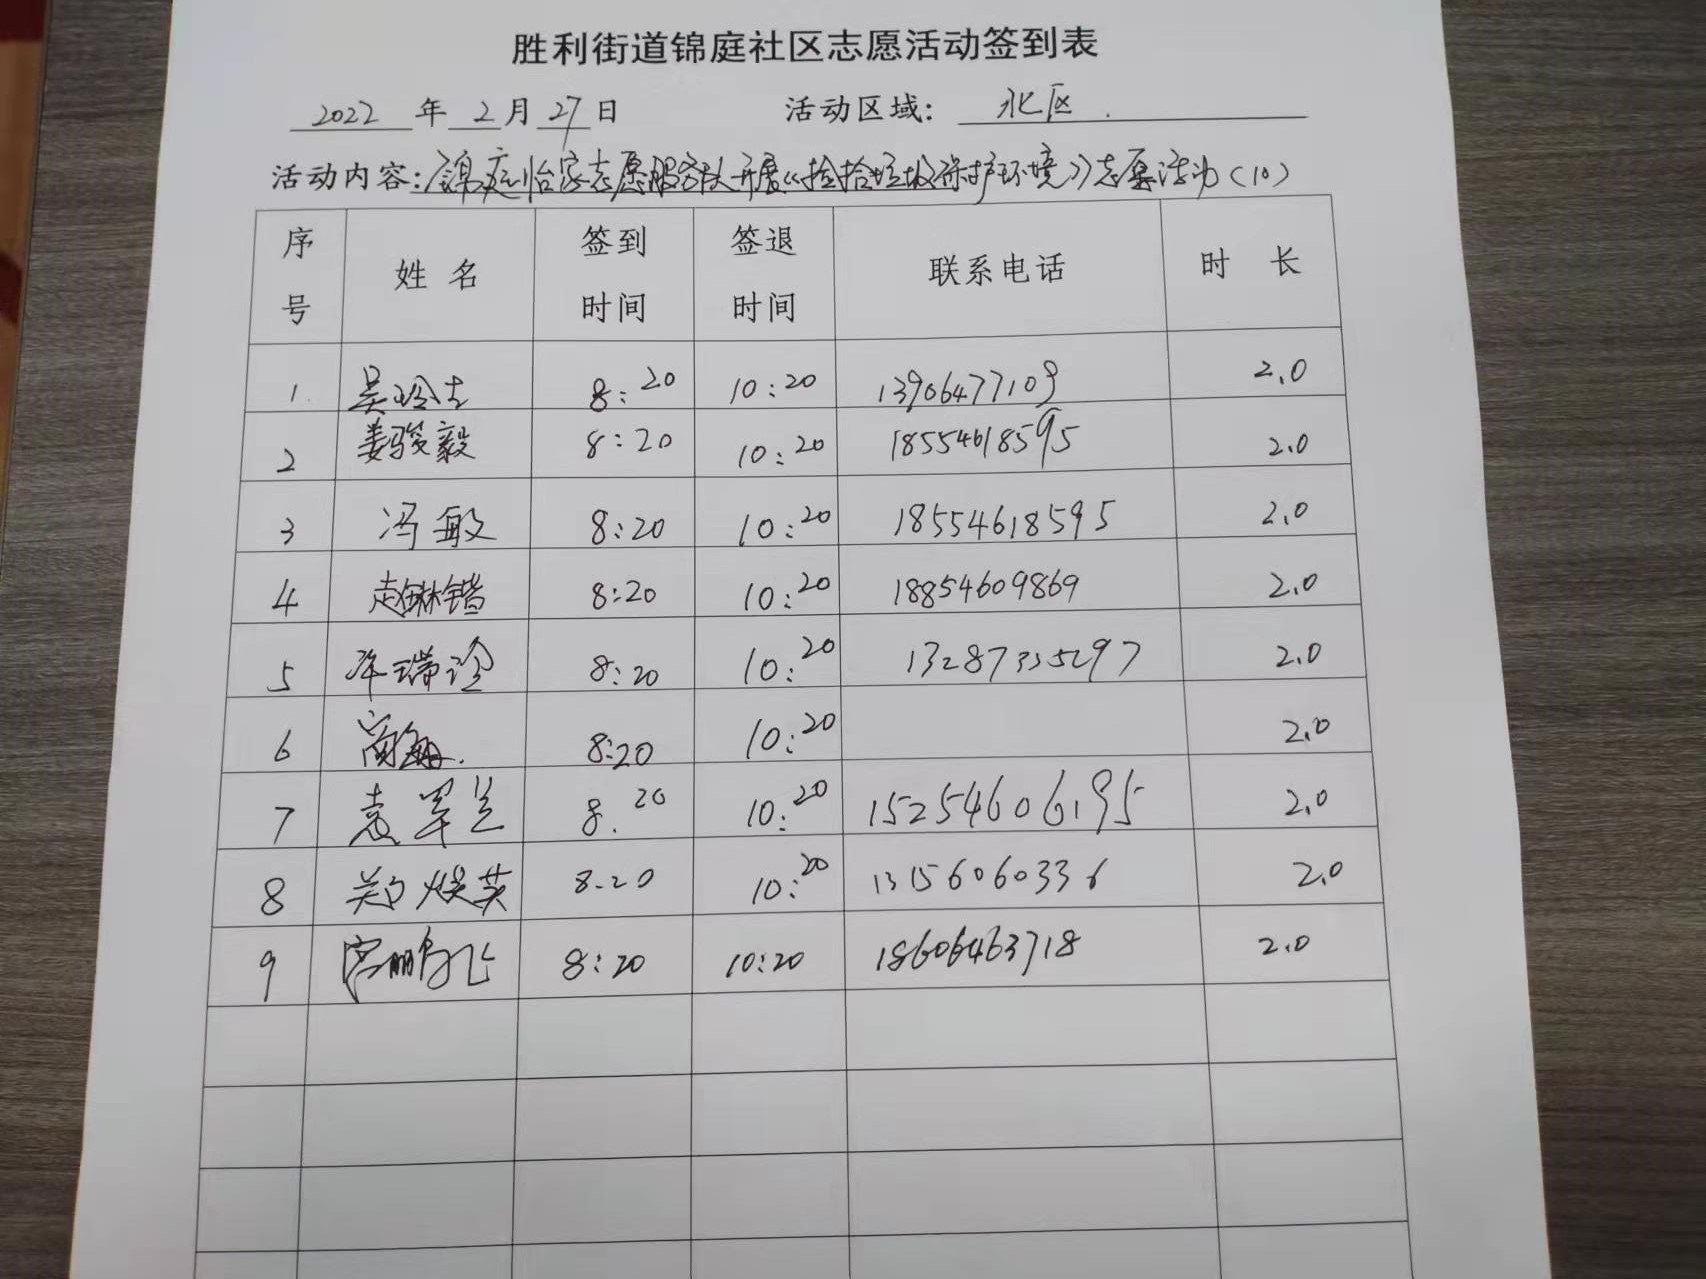 胜利街道锦庭社区志愿活动签到表
2022 年 2 月 27 日 活动区域： 北区
活动内容：锦庭怡家志愿服务队开展《捡拾垃圾保护环境》志愿活动（10）
序号 姓名 签到时间 签退时间 联系电话 时 长
1. 8:20 10:20 13906477109 2.0
2 姜骏毅 8:20 10:20 18554618595 2.0
3 冯敏 8:20 10:20 18554618595 2.0
4 8:20 10:20 18854609869 2.0
5 8:20 10:20 13287335297 2.0
6 8:20 10:20 2.0
7 袁军兰 8.20 10:20 15254606195 2.0
8 郑焕英 8-20 10:20 13156060336 2.0
9 鹏飞 8:20 10:20 18606463718 2.0